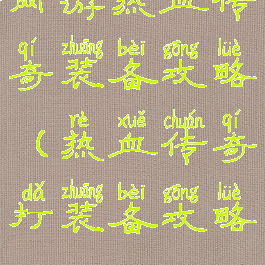 戏游热血传
qí zhuāng bèi gōng lüè
奇装备攻略
rè xuě chuán qí
(热血传奇
dǎ zhuāng bèi gōng lüè
打装备攻略